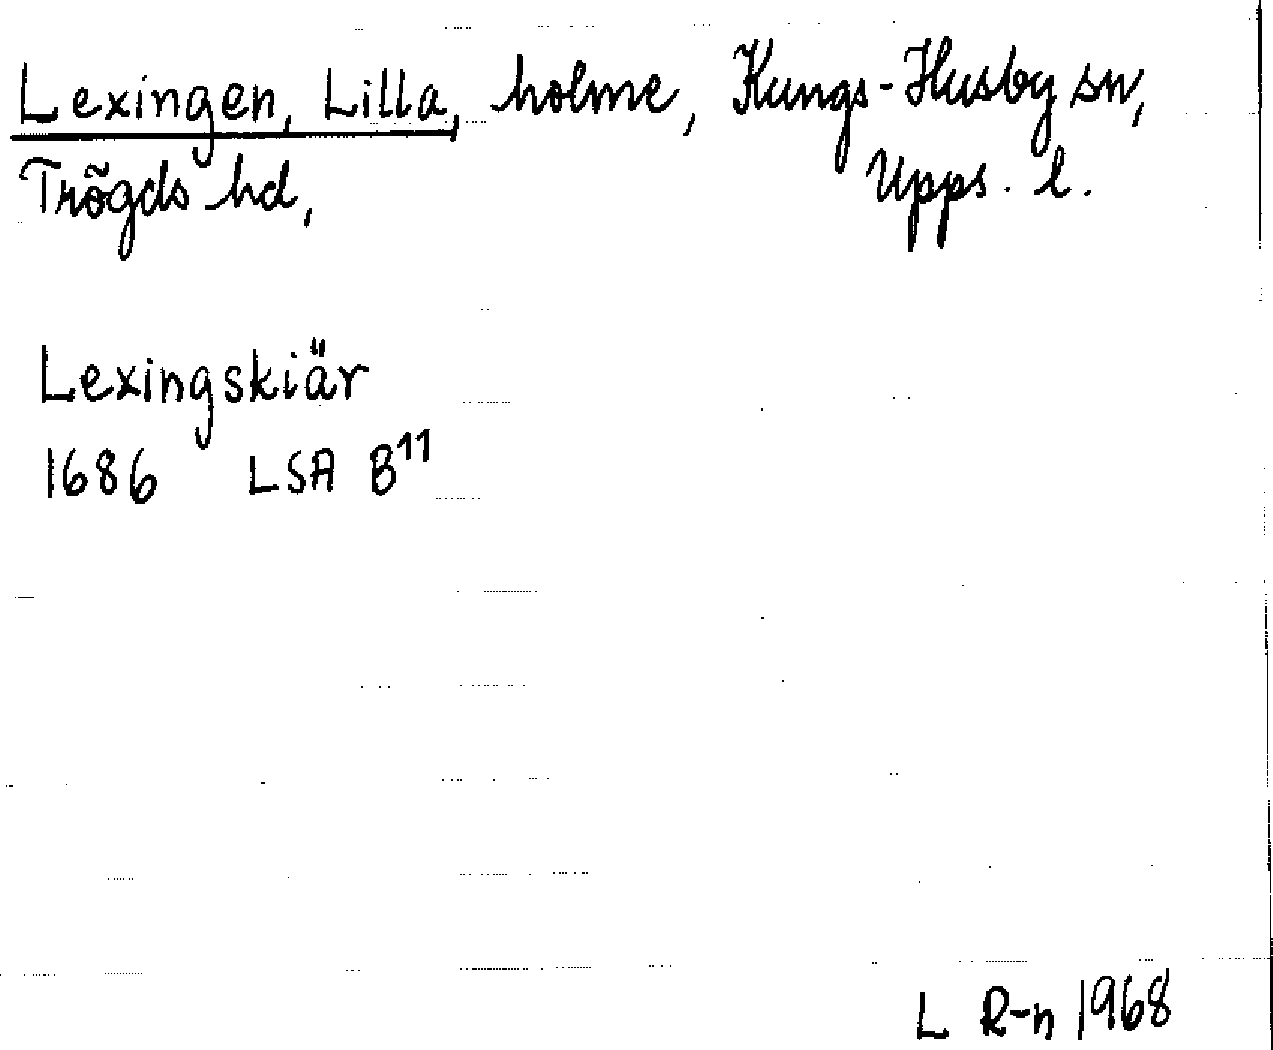 Lexingen, Lilla, holme, Kungs-Husby sn,
Trögds hd, Upps. l.
Lexingskiär
1686 LSA B¹¹
L R-n 1968